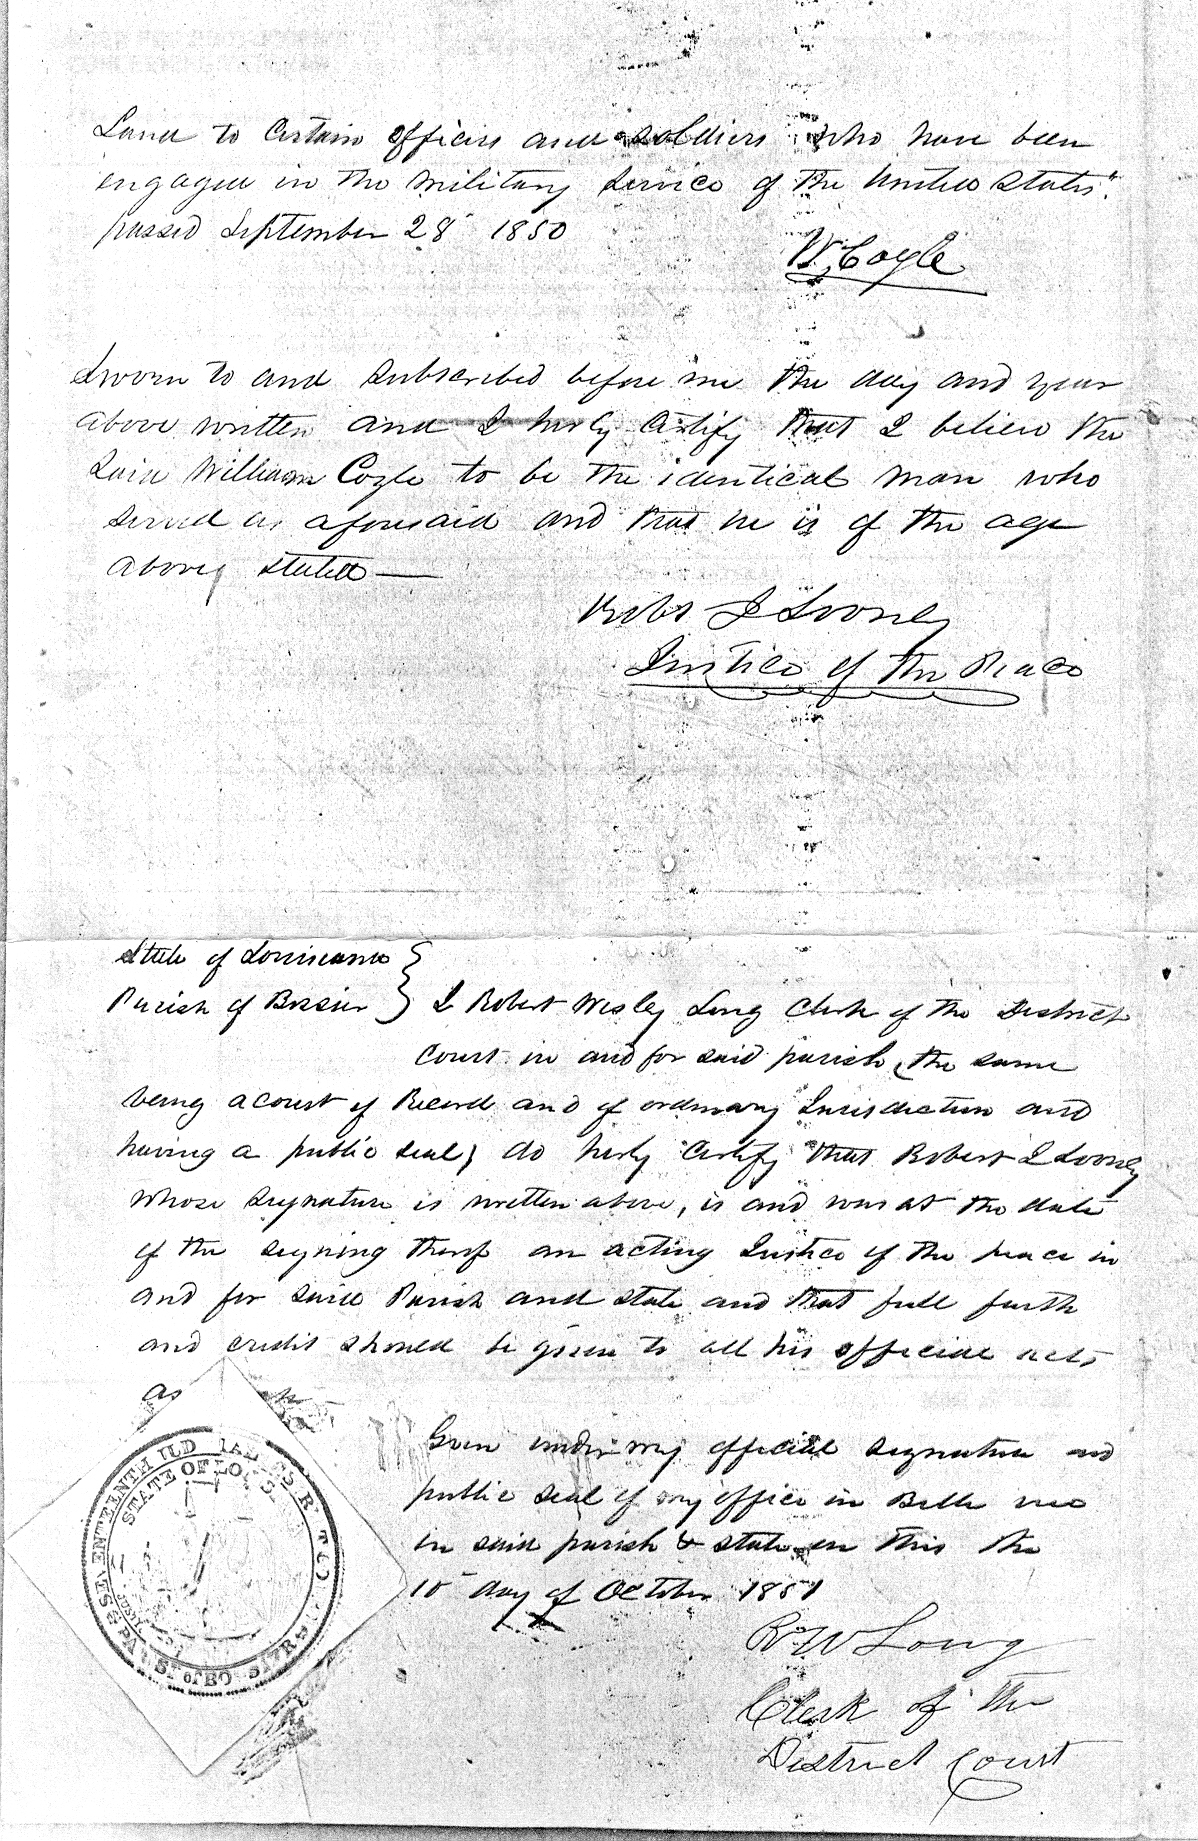 Land to Certain officers and soldiers who have been
engaged in the military service of the United States"
passed September 28 1850
W Cogle
Sworn to and subscribed before me the day and year
above written and I hereby Certify that I believe the
said William Cogle to be the identical man who
served as aforesaid and that he is of the age
above stated —
Robt J Looney
Justice of the Peace
State of Louisiana }
Parish of Bossier } I Robert Wesley Long Clerk of the District
Court in and for said parish, the same
being a court of Record and of ordinary Jurisdiction and
having a public seal, do herby Certify that Robert J Looney
whose signature is written above, is and was at the date
of the signing therof an acting Justice of the peace in
and for said Parish and state and that full faith
and credit should be given to all his official acts
as
Given under my official signature and
public seal of my office in Belle vue
in said parish & state on this the
10 day of October 1851
R W Long
Clerk of the
District Court
SEVENTEENTH
STATE OF